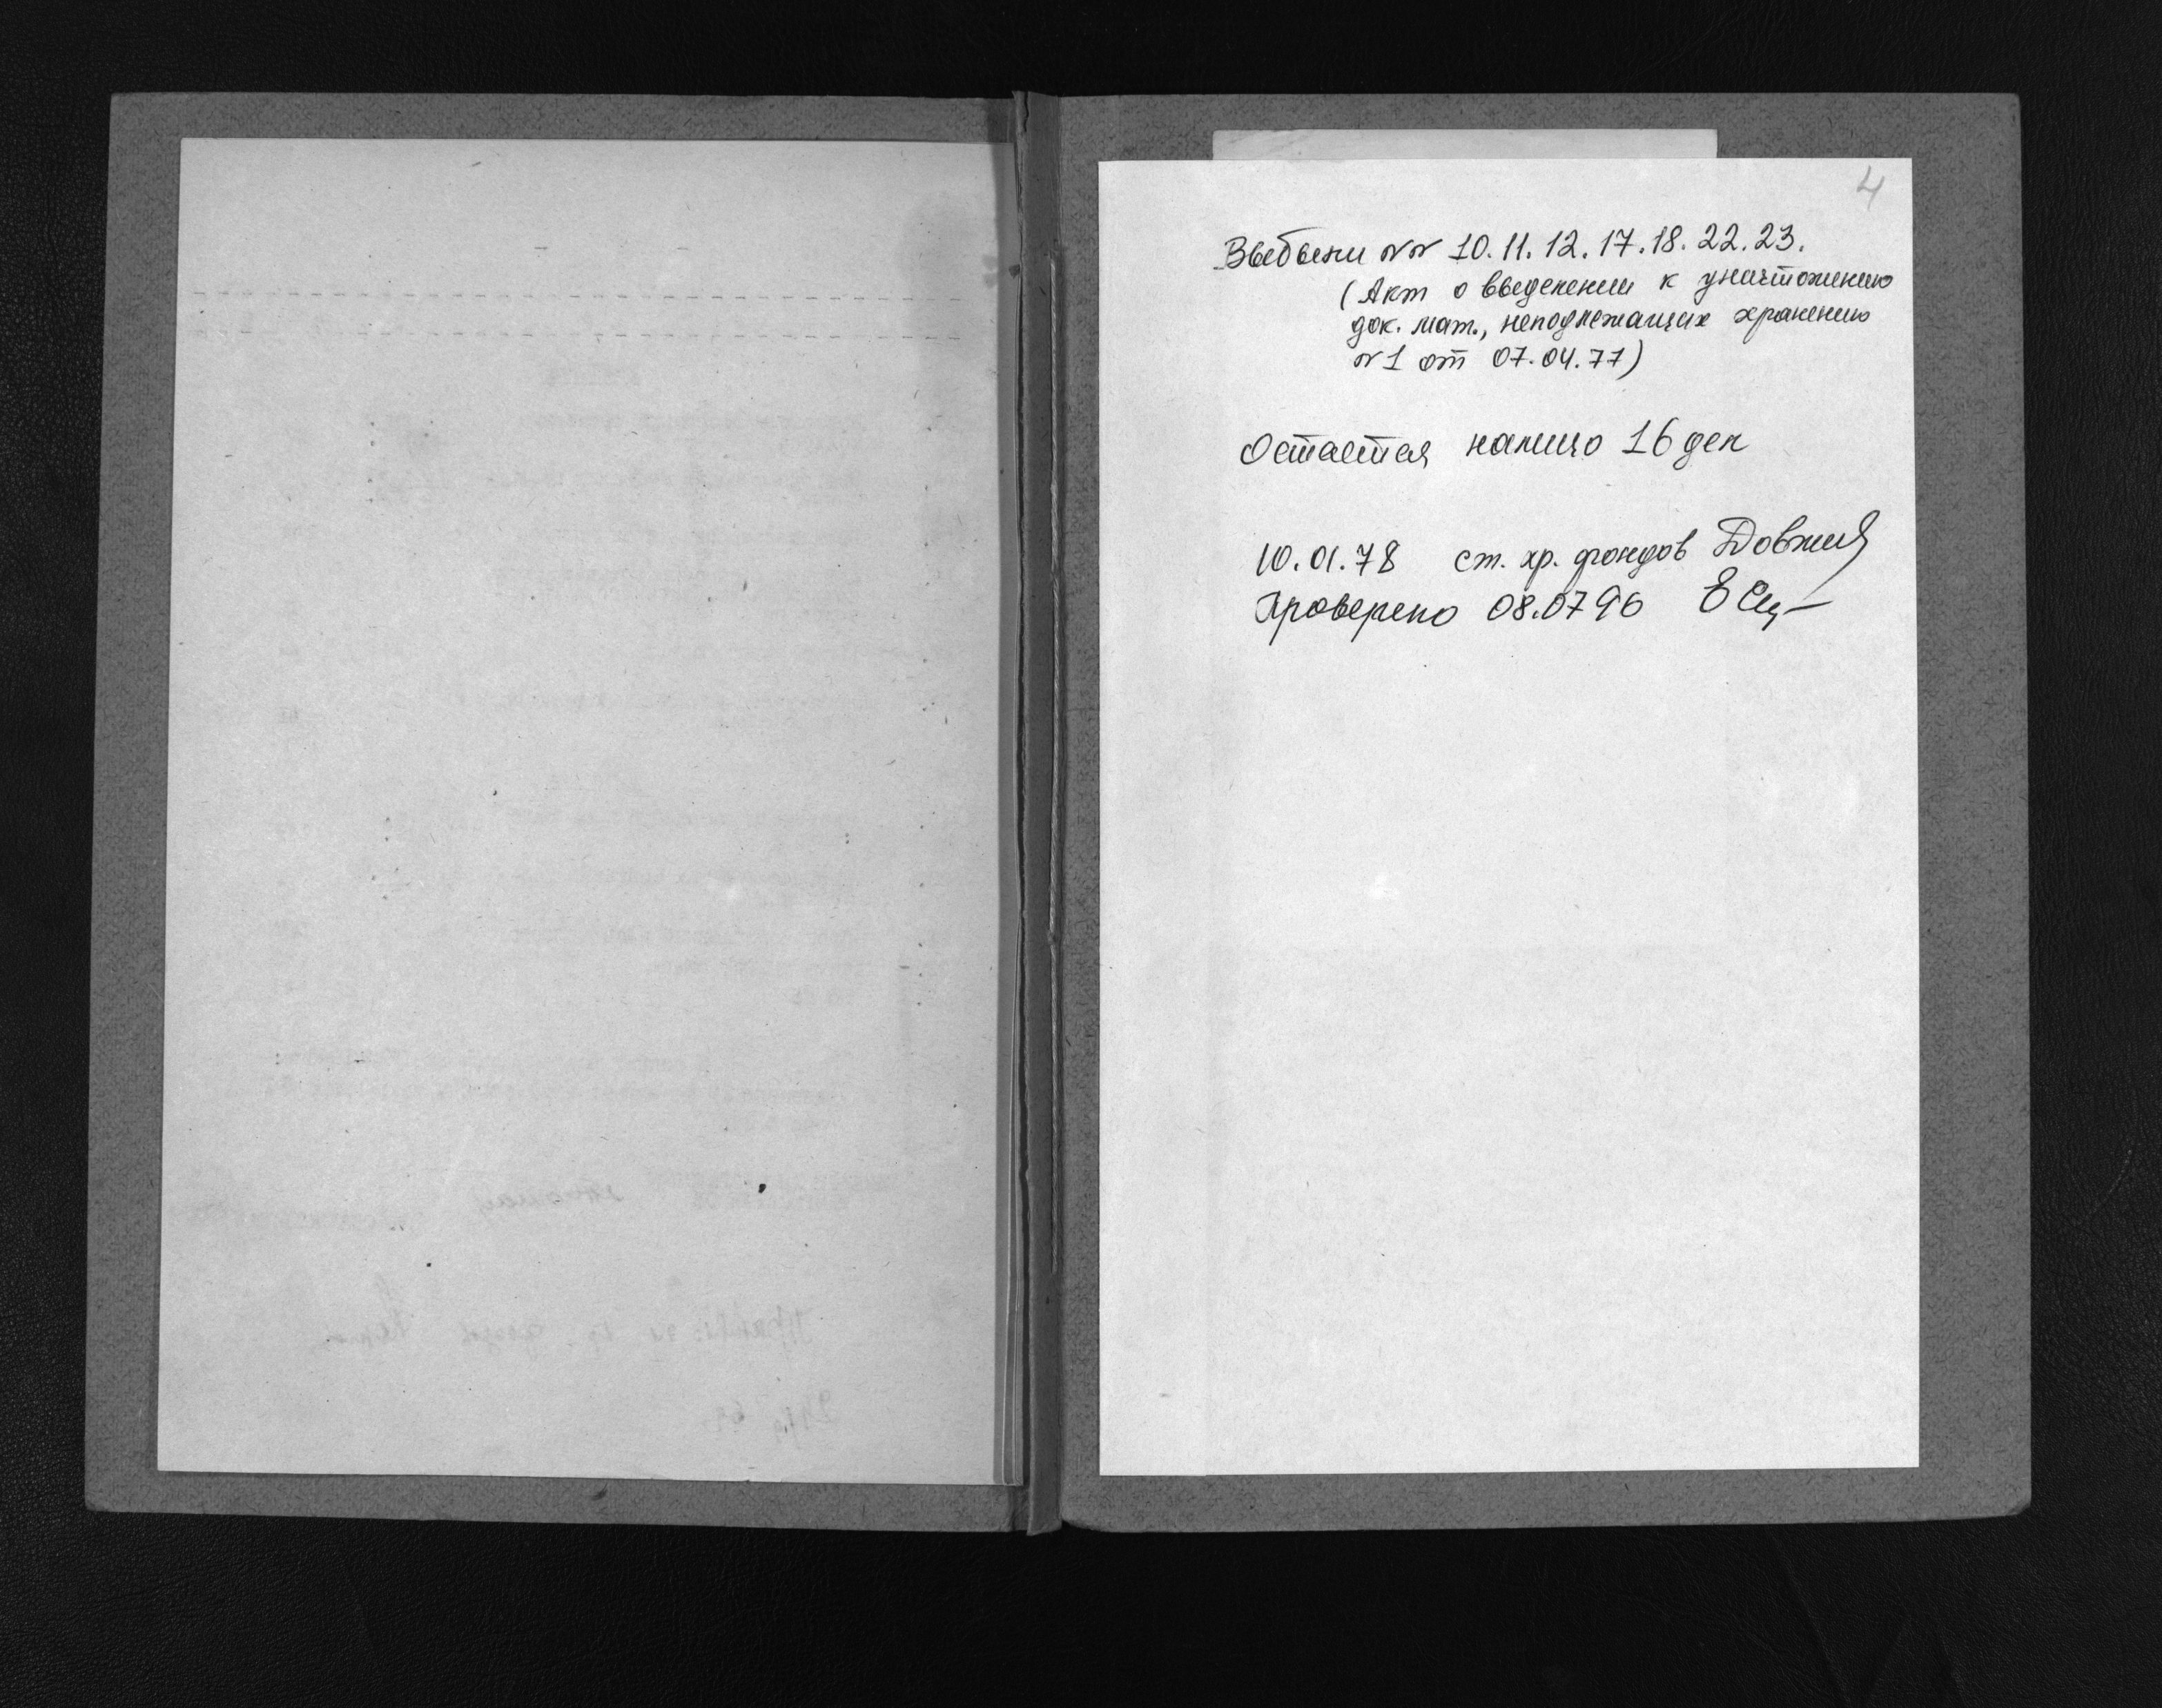 4
Выбыли №№ 10.11.12.17.18.22.23.
(Акт о выделении к уничтожению
док. мат., неподлежащих хранению
№1 от 07.04.77)
Остается налицо 16 дел
10.01.78 ст. хр. фондов
Проверено 08.07 96